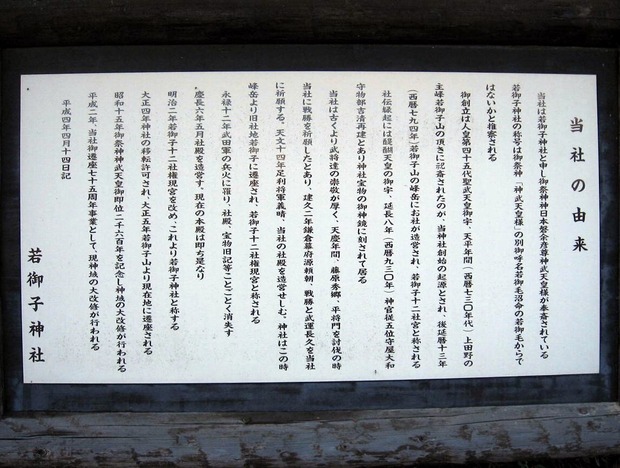 当社の由来
当社は若御子神社と申し御祭神神日本磐余彦尊神武天皇様が奉斎されている
若御子神社の称号は御祭神「神武天皇様」の別御呼名若御毛沼命の若御毛からで
はないかと推察される
御創立は人皇第四十五代聖武天皇御宇、天平年間(西暦七三〇年代)上田野の
主峰若御子山の頂きに祀斎されたのが、当神社創始の起源とされ、後延暦十三年
(西暦七九四年)若御子山の峰岳にお社が造営され、若御子十二社宮と称される
社伝縁起には醍醐天皇の御宇・延長八年(西暦九三〇年)神官従五位守屋大和
守物部吉清再建とあり神社宝物の御神鏡に刻されて居る
当社は古くより武将達の崇敬が厚く、天慶年間、藤原秀郷、平将門を討伐の時
当社に戦勝を祈願したとあり、建久二年鎌倉幕府源頼朝、戦勝と武運長久を当社
に祈願する。天文十四年足利将軍義晴、当社の社殿を造営せしむ。神社はこの時
峰岳より旧社地若御子に遷座され、若御子十二社権現宮と称される
永禄十二年武田軍の兵火に罹り、社殿、宝物旧記等ことごとく消失す
慶長六年五月社殿を造営す。現在の本殿は即ち是なり
明治二年若御子十二社権現宮を改め、これより若御子神社と称する
大正四年神社の移転許可され、大正五年若御子山より現在地に遷座される
昭和十五年御祭神神武天皇御即位二千六百年を記念し神域の大改修が行われる
平成二年、当社御遷座七十五周年事業として、現神域の大改修が行われる
平成四年四月十四日記
若御子神社